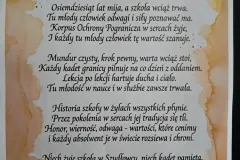 Osiemdziesiąt lat mija, a szkoła wciąż trwa.
Tu młody człowiek odwagi i siły poznawać ma.
Korpus Ochrony Pogranicza w sercach żyje,
I każdy tu młody człowiek tę wartość szanuje.
Mundur czysty, krok pewny, warta wciąż stoi,
Każdy kadet granicy pilnuje na co dzień z oddaniem.
Lekcja po lekcji hartuje ducha i ciało.
Tu młodość w nauce i w służbie zawsze trwała.
Historia szkoły w żyłach wszystkich płynie.
Przez pokolenia w sercach jej tradycja się tli.
Honor, wierność, odwaga - wartości, które cenimy
i każdy absolwent je w świecie rozsiewa i chroni.
Niech żyje szkoła w Szydłowcu, niech kadet pamięta,